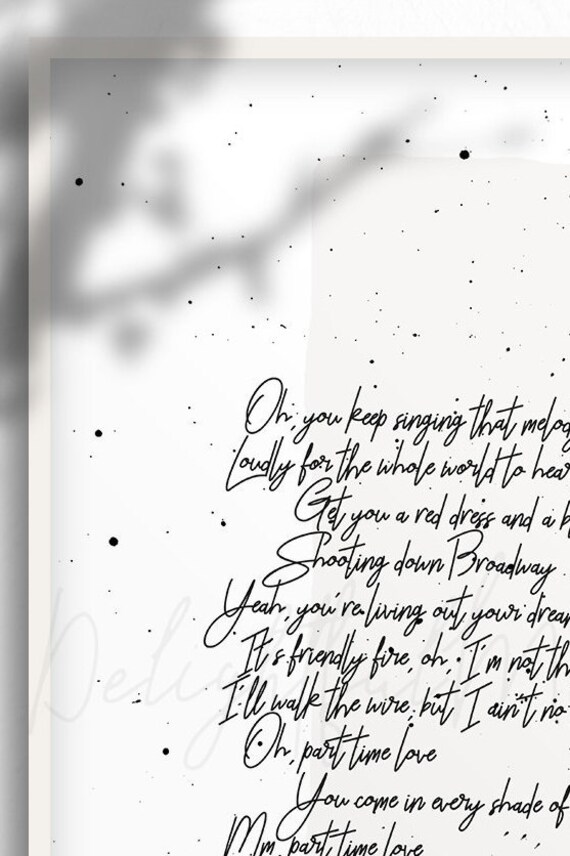 Oh, you keep singing that melod
Loudly for the whole world to hear
Get you a red dress and a b
Shooting down Broadway
Yeah, you're living out your dream
It's friendly fire, oh, I'm not th
I'll walk the wire, but I ain't no
Oh, part time love
You come in every shade of
Mm, part time love
Delightful M